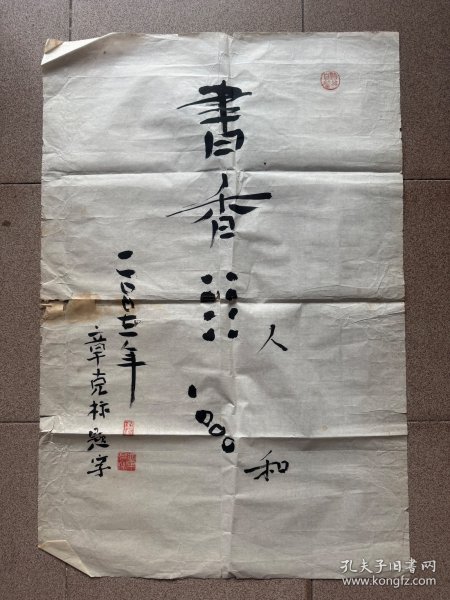 書香
人和
年
章克标题字
孔夫子旧书网
www.kongfz.com